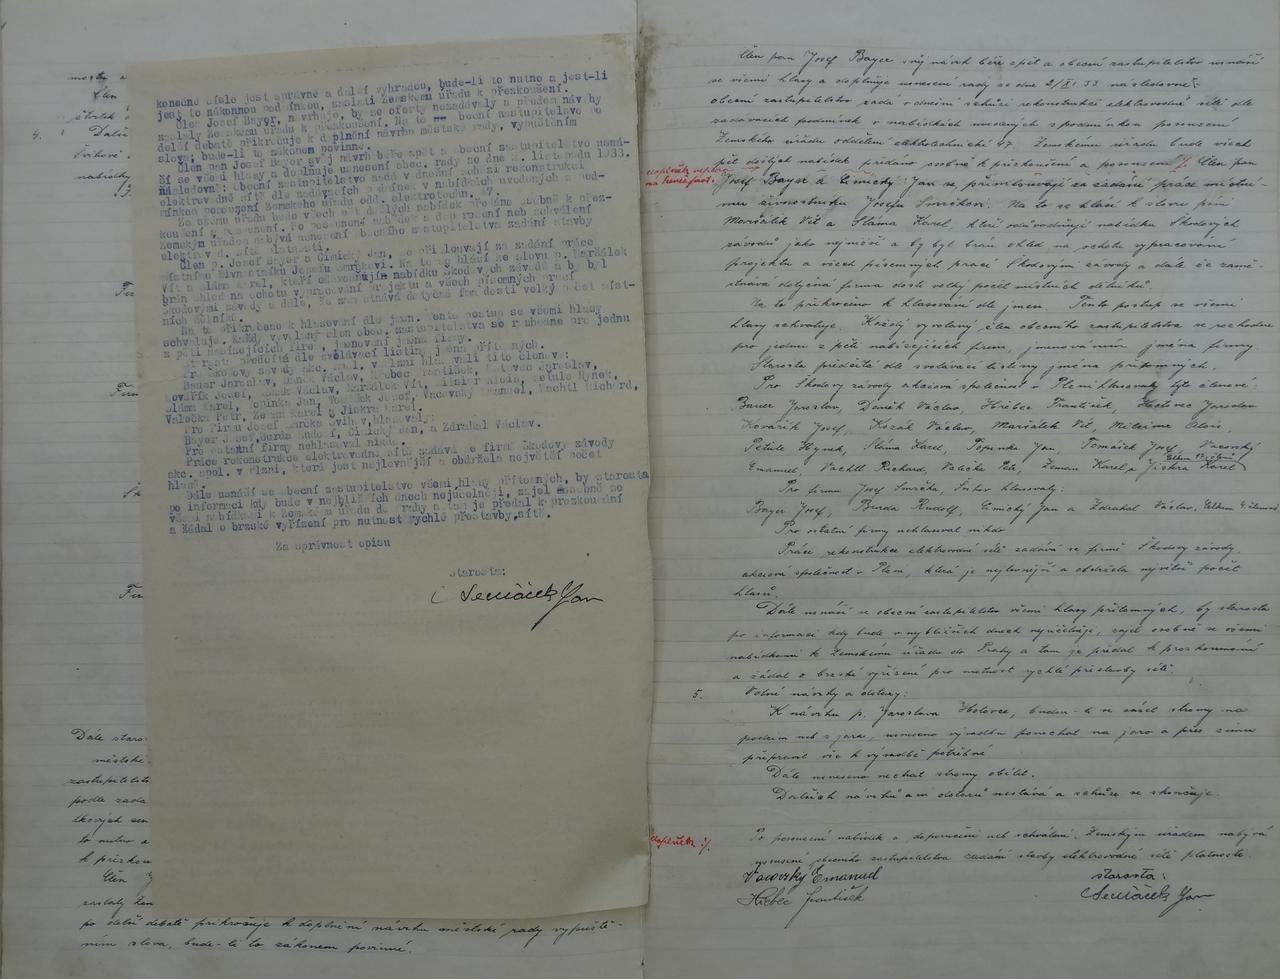 mosty a
člen
čtvrtek
4. Další
Firkové
nabídky
Dále staro
městské
zastupitelstv
podle zada
to nutno a
k přezkou
Člen
zaslaly Zem
po delší debatě přikročuje k doplnění návrhu městské rady vypuště-
ním slova, bude-li to zákonem povinné.
konečné číslo jest správné a další výhradou, bude-li to nutno a jest-li
jest to zákonnou podmínkou, zaslati Zemskému úřadu k přeskoušení.
Člen Josef Bayer, navrhuje, by se oferty nezadávaly a předem návrhy
zaslaly Zemskému úřadu k přeskoušení. Na to obecní zastupitelstvo po
delší debatě přikročuje k doplnění návrhu městské rady, vypuštěním
slova; bude-li to zákonem povinné.
Člen pan Josef Bayer svůj návrh béře zpět a obecní zastupitelstvo usná-
ší se všemi hlasy a doplňuje usnesení obec. rady ze dne 2. listopadu 1933.
následovně: Obecní zastupitelstvo zadá v dnešní schůzi rekonstrukci
elektrovodné sítě dle zadávacích podmínek v nabídkách uvedených a pod-
mínkou posouzení Zemského úřadu odd. elektrotechn. 17.
Zemskému úřadu bude všech pět došlých nabídek předáno osobně k přez-
koušení a posouzení. Po posouzení nabídek a doporučení neb schválení
Zemským úřadem nabývá usnesení obecního zastupitelstva zadání stavby
elektrovod. sítě platnosti.
Člen p. Josef Bayer a Cimický Jan, se přimlouvají za zadání práce
místnímu živnostníku Josefu Smrčkovi. Na to se hlásí ke slovu p. Maršálek
Vít a Sláma Karel, kteří odůvodňují nabídku Škodových závodů a by byl
brán ohled na ochotu vypracování projektu a všech písemných prací
Škodovými závody a dále, že zaměstnává dotyčná firma dosti velký počet míst-
ních dělníků.
Na to přikročeno k hlasování dle jmen. Tento postup se všemi hlasy
schvaluje. Každý vyvolaný člen obec. zastupitelstva se rozhodne pro jednu
z pěti nabízejících firem, jmenování jména firmy.
Starosta předčítá dle svolávací listiny jména přítomných.
Pro Škodovy závody akc. spol. v Plzni hlasovali tito členové:
Bauer Jaroslav, Daněk Václav, Hřebec František, Holovec Jaroslav,
Kovářík Josef, Kozák Václav, Maršálek Vít, Alois, Petule Hynek,
Sláma Karel, Topinka Jan, Tomášek Josef, Vacovský Emanuel, Vachtl Richard,
Valečka Petr, Zeman Karel a Jiskra Karel.
Pro Firmu Josef Smrčka Švihov hlasovali:
Bayer Josef, Burda Rudolf, Cimický Jan, a Zdrahal Václav.
Pro ostatní firmy nehlasoval nikdo.
Práce rekonstrukce elektrovodné sítě zadává se firmě Škodovy závody
akc. spol. v Plzni, která jest nejlevnější a obdržela největší počet
hlasů.
Dále usnáší se obecní zastupitelstvo všemi hlasy přítomných, by starosta
po informaci kdy bude v nejbližších dnech nejúčelněji, zajel osobně se
všemi nabídkami k Zemskému úřadu do Prahy a tam je předal k proskoumání
a žádal o brzské vyřízení pro nutnost rychlé přestavby sítě.
Za správnost opisu
starosta:
Semáček Jan
Člen pan Josef Bayer svůj návrh béře zpět a obecní zastupitelstvo usnáší
se všemi hlasy a doplňuje usnesení rady ze dne 2/XI. 33 následovně:
obecní zastupitelstvo zadá v dnešní schůzi rekonstrukci elektrovodné sítě dle
zadávacích podmínek v nabídkách uvedených s podmínkou posouzení
Zemského úřadu oddělení elektrotechnické 17. Zemskému úřadu bude všech
pět došlých nabídek předáno osobně k přezkoušení a posouzení ./. Člen pan
doplněk
Josef Bayer a Cimický Jan se přimlouvají za zadání práce místní-
mu živnostníku Josefu Smrčkovi. Na to se hlásí k slovu páni
Maršálek Vít a Sláma Karel, kteří odůvodňují nabídku Škodových
závodů jako nejnižší a by byl brán ohled na ochotu vypracování
projektu a všech písemných prací Škodovými závody a dále že zamě-
stnává dotyčná firma dosti velký počet místních dělníků.
Na to přikročeno k hlasování dle jmen. Tento postup se všemi
hlasy schvaluje. Každý vyvolaný člen obecního zastupitelstva se rozhodne
pro jednu z pěti nabízejících firem, jmenováním jména firmy
Starosta předčítá dle svolávací listiny jména přítomných.
Pro Škodovy závody akciová společnost v Plzni hlasovaly tyto členové:
Bauer Jaroslav, Daněk Václav, Hřebec František, Holovec Jaroslav
Kovářík Josef, Kozák Václav, Maršálek Vít, Alois,
Petule Hynek, Sláma Karel, Topinka Jan, Tomášek Josef, Vacovský
Emanuel, Vachtl Richard, Valečka Petr, Zeman Karel a Jiskra Karel
Pro firmu Josef Smrčka, Švihov hlasovaly:
Bayer Josef, Burda Rudolf, Cimický Jan a Zdrahal Václav. Celkem 4 členové
Pro ostatní firmy nehlasoval nikdo
Práce rekonstrukce elektrovodné sítě zadává se firmě Škodovy závody,
akciová společnost v Plzni, která je nejlevnější a obdržela největší počet
hlasů.
Dále usnáší se obecní zastupitelstvo všemi hlasy přítomných, by starosta
po informaci kdy bude v nejbližších dnech nejúčelněji, zajel osobně se všemi
nabídkami k Zemskému úřadu do Prahy a tam je předal k prozkoumání
a žádal o brzské vyřízení pro nutnost rychlé přestavby sítě.
5. Volné návrhy a dotazy:
K návrhu p. Jaroslava Holovce, budou-li se sázet stromy na
podzim neb z jara, usneseno výsadbu ponechat na jaro a přes zimu
připravit vše k výsadbě potřebné
Dále usneseno nechat stromy obílit.
Dalších návrhů ani dotazů nestává a schůze se skončuje.
doplněk ./. Po posouzení nabídek a doporučení neb schválení Zemským úřadem nabývá
usnesení obecního zastupitelstva zadání stavby elektrovodné sítě platnosti.
Vacovský Emanuel starosta:
Hřebec František Semáček Jan